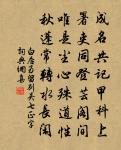 成名共記甲科上
署吏同登芸閣間
唯是塵心殊道性
秋蓬常轉水長閑
白居易留別吳七正字
詞典網集